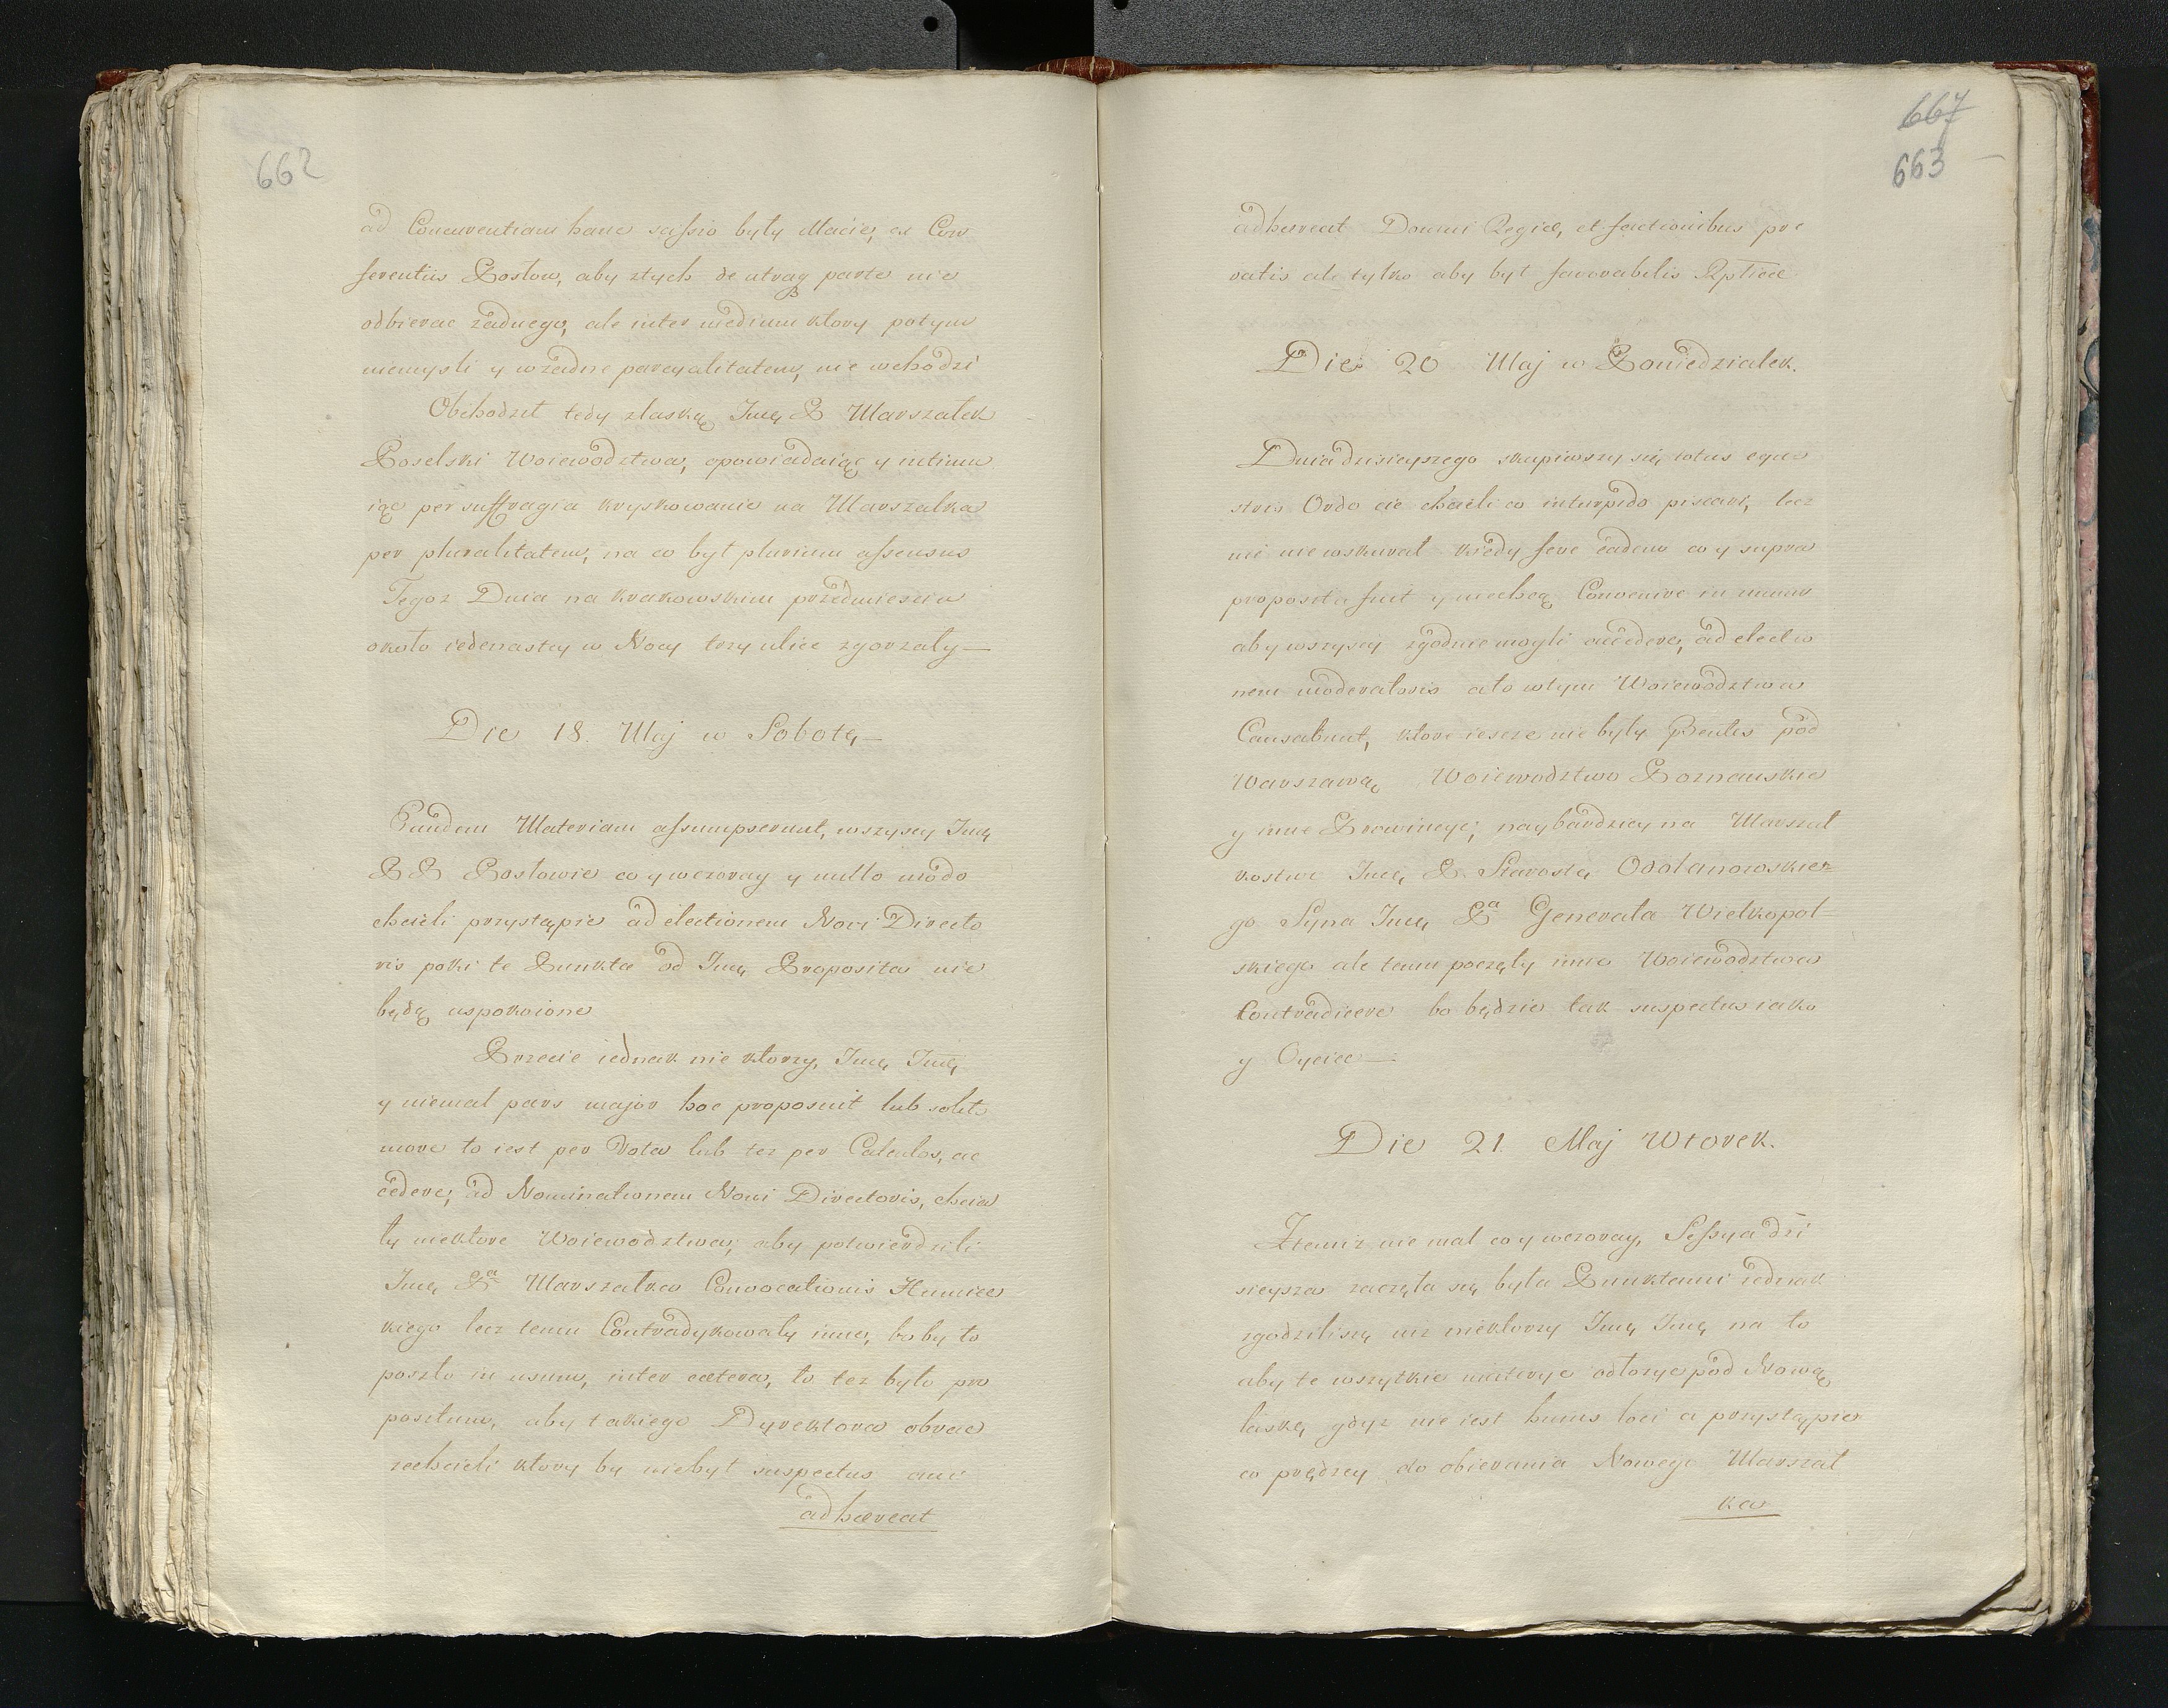 662
ad Concurentiam hanc sassio były Macie, ex Con
ferentiis Posłow, aby ztych de utraq parte nie
odbierac żadnego, ale inter medium ktory potym
niemysli y wżadne parcyalitatem, nie wchodzi
Obchodził tedy zlaską Jmę P Marszałek
Poselski Woiewodztwa, opowiadaiąc y intimu
iąc per suffragia kryskowanie na Marszałka
per pluralitatem, na co był plurium assensus
Tegoz Dnia na krakowskim przedmiesciu
około iedenastey w Nocy trzy ulice zgorzały —
Die 18. Maj w Sobotę —
Eandem Materiam assumpserunt, wszyscy Jmę
P P Posłowie co y wczoray y nullo modo
chcieli przystąpic ad electionem Novi Directo
ris poki te Punkta od Jmę Proposita nie
będą uspokoione
Przecie iednak nie ktorzy, Jmę Jmę
y niemal pars major hoc proposuit lub solito
more to iest per Vota lub tez per Calculos, ac
cedere, ad Nominationem Novi Directoris, chcia
ły niektore Woiewodztwa, aby potwierdzili
Jmę Pa Marszałka Convocationis Humiec
kiego lecz temu Contradykowały inne, bo by to
poszło in usum, inter cætera, to tez było pro
positum, aby takiego Dyrektora obrac
zechcieli ktory by niebył suspectus ani
adhæreat
667
663
adhæreat Domui Regiæ, et factionibus pri
vatis ale tylko aby był favorabilis Rpticæ
Die 20 Maj w Poniedziałek.
Dnia dzisieyszego skupiwszy się totus eque
stris Ordo cie chcieli co inturpido piscari, lecz
nic nie wskurał kiedy fere eadem co y supra
proposita fuit y niechcą Convenire in unum
aby wszyscy zgodnie mogli accedere, ad electio
nem moderatoris a to wtym Woiewodztwa
Causabunt, ktore iescze nie były Pntes pod
Warszawą Woiewodztwo Poznanskie
y inne Prowincye, naybardziey na Marszał
kostwo Jmę P. Starostę Odolanowskie=
go Syna Jmę Pa Generała Wielkopol=
skiego ale temu poczęły inne Woiewodztwa
Contradicere bo będzie tak suspectus iako
y Oyciec —
Die 21. Maj Wtorek.
Ztemiz nie mal co y wczoray, Sessya dzi
sieysza zaczęta się była Punktami iednak
zgodzilisię iuz niektorzy Jmę Jmę na to
aby te wszytkie materye odłozyc pod Nową
laskę gdyz nie iest huius loci a przystąpic
co prędzey do obierania Nowego Marszał
ka